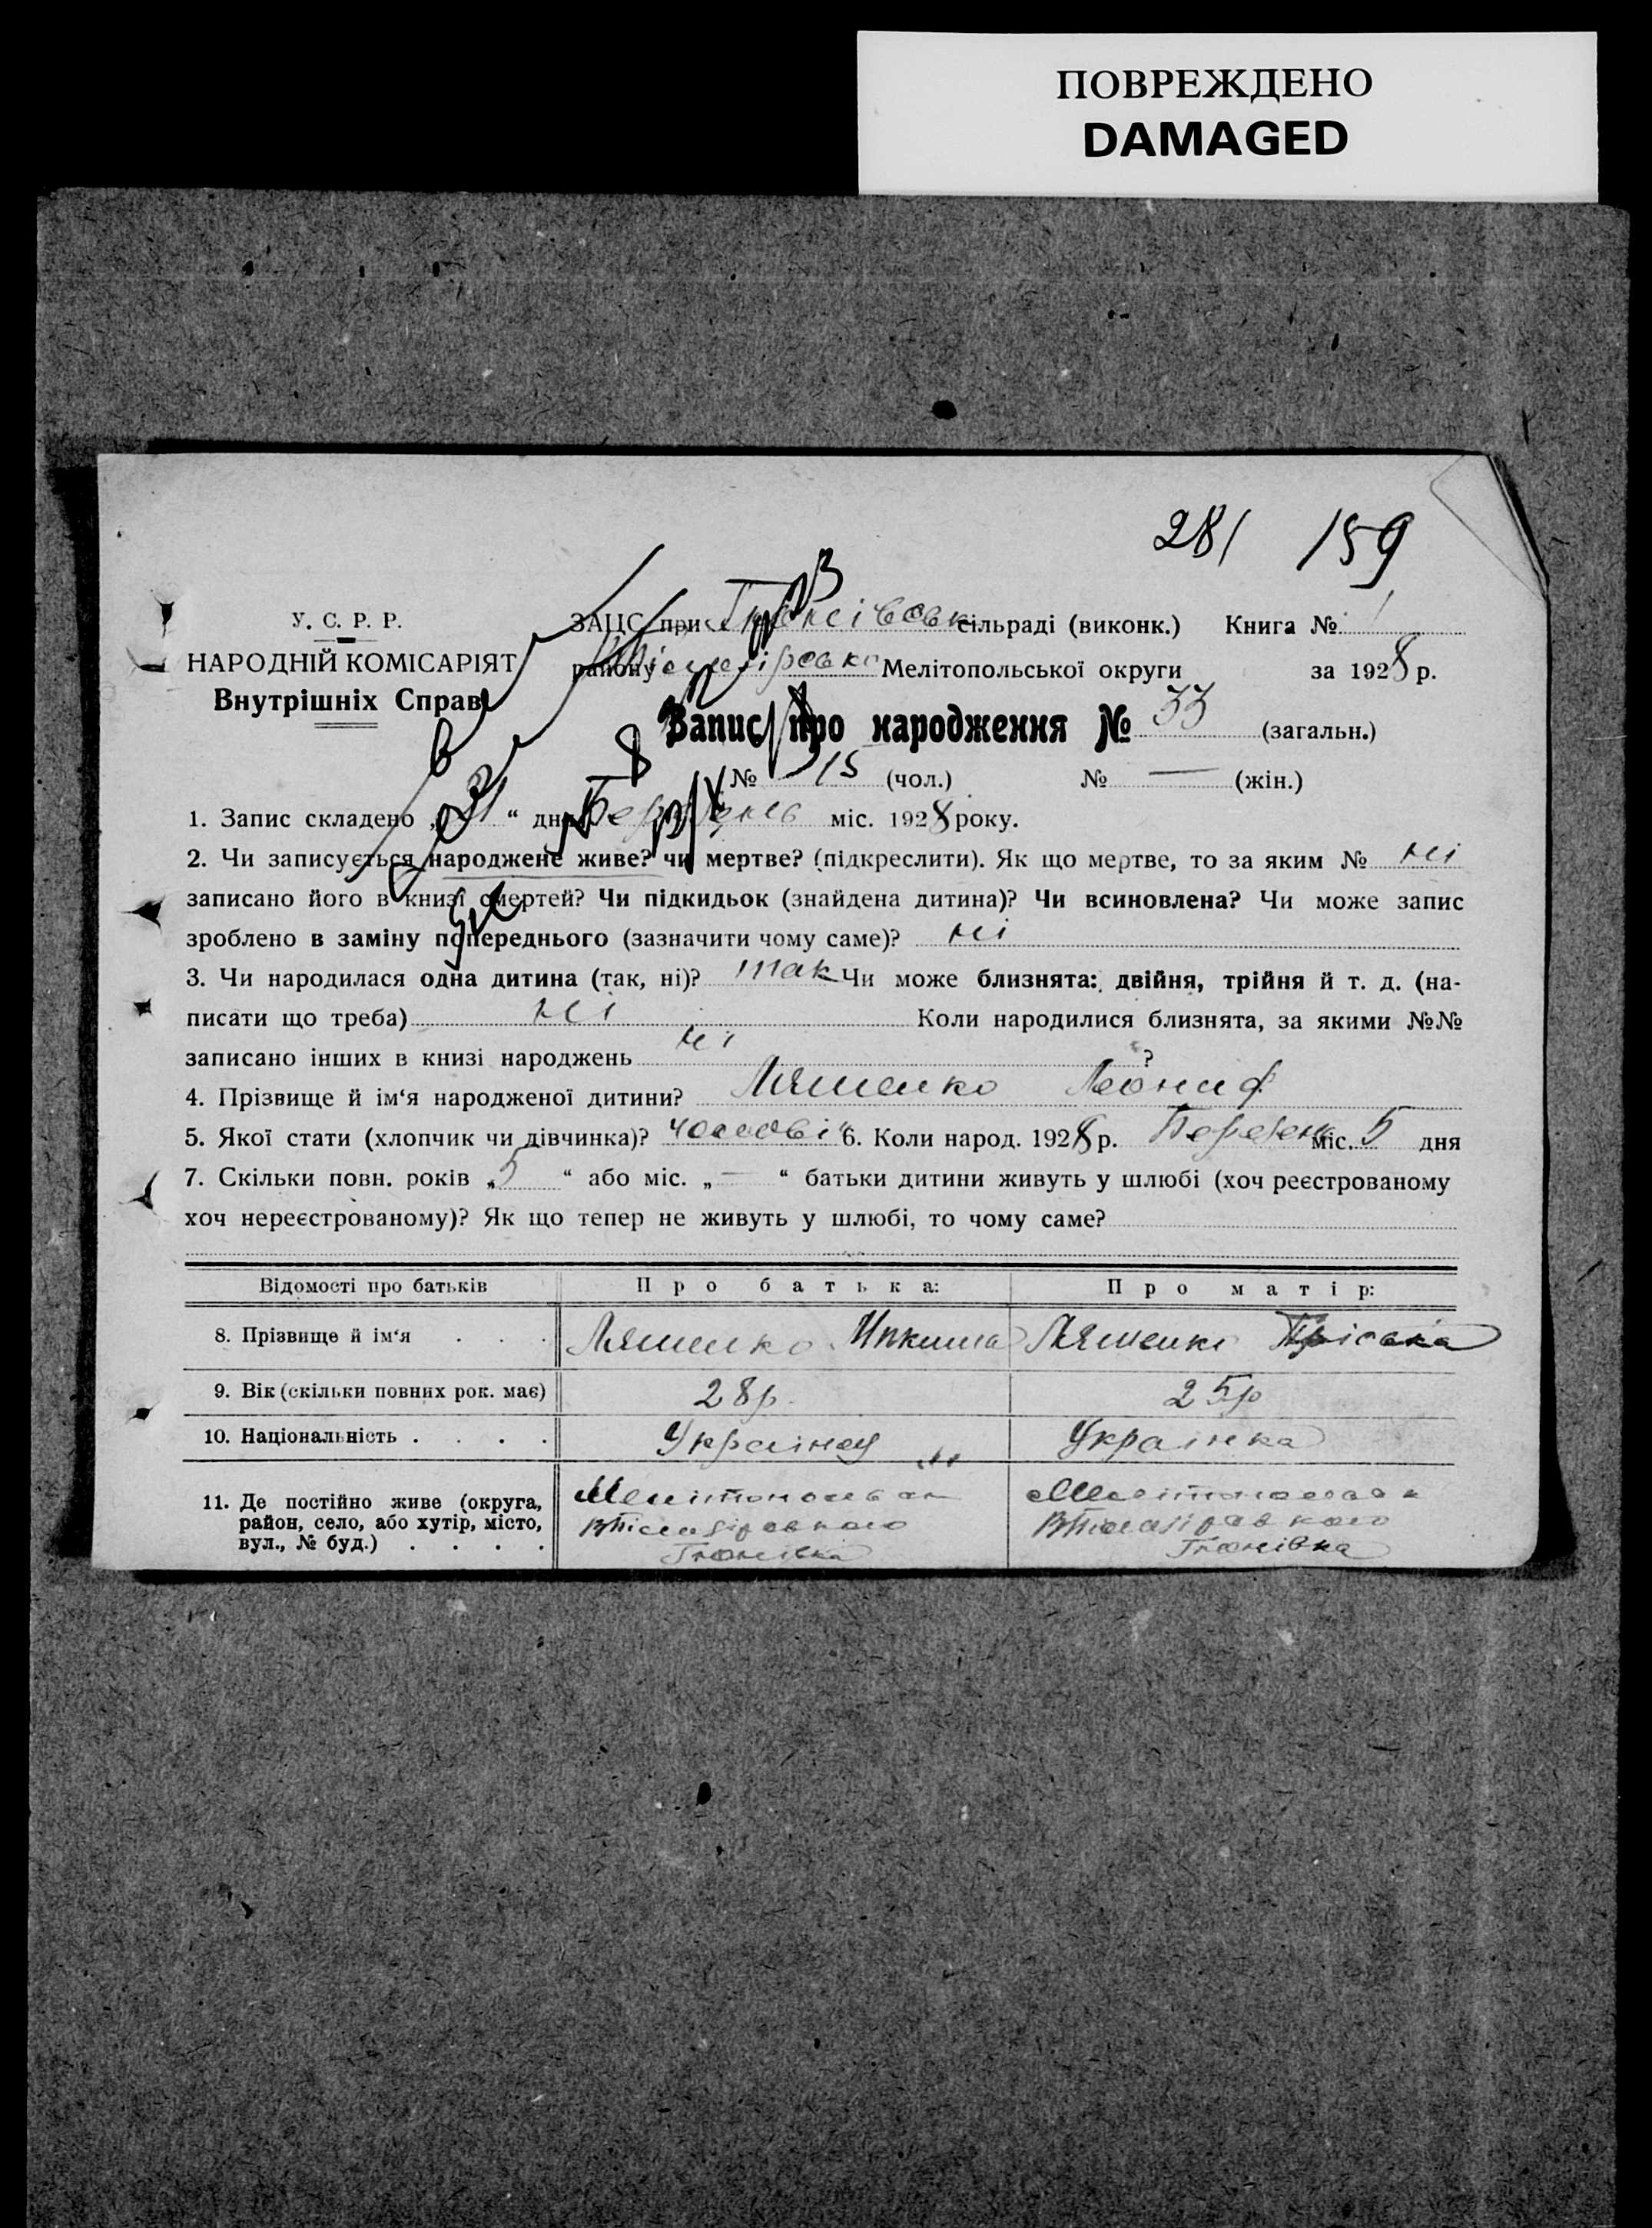 ПОВРЕЖДЕНО
DAMAGED
281 159
У. С. Р. Р.
НАРОДНІЙ КОМІСАРІЯТ
Внутрішніх Справ
ЗАЦС при сільраді (виконк.) Книга № 1
району Мелітопольської округи за 1928 р.
Запис про народження № 33 (загальн.)
№ 15 (чол.) № — (жін.)
1. Запис складено „31“ дня Березень міс. 1928 року.
2. Чи записується народжене живе? чи мертве? (підкреслити). Як що мертве, то за яким № ні
записано його в книзі смертей? Чи підкидьок (знайдена дитина)? Чи всиновлена? Чи може запис
зроблено в заміну попереднього (зазначити чому саме)? ні
3. Чи народилася одна дитина (так, ні)? так Чи може близнята: двійня, трійня й т. д. (на-
писати що треба) ні Коли народилися близнята, за якими №№
записано інших в книзі народжень ні ?
4. Прізвище й ім‘я народженої дитини? Ляшенко Леонид
5. Якої стати (хлопчик чи дівчинка)? 6. Коли народ. 1928 р. Березень міс. 5 дня
7. Скільки повн. років „5“ або міс. „—“ батьки дитини живуть у шлюбі (хоч реєстрованому
хоч нереєстрованому)? Як що тепер не живуть у шлюбі, то чому саме?
Відомості про батьків Про батька: Про матір:
8. Прізвище й ім‘я . . . Ляшенко Ляшенко
9. Вік (скільки повних рок. має) 28р. 25р
10. Національність . . . . Українец Украінка
11. Де постійно живе (округа,
район, село, або хутір, місто,
вул., № буд.) . . . .